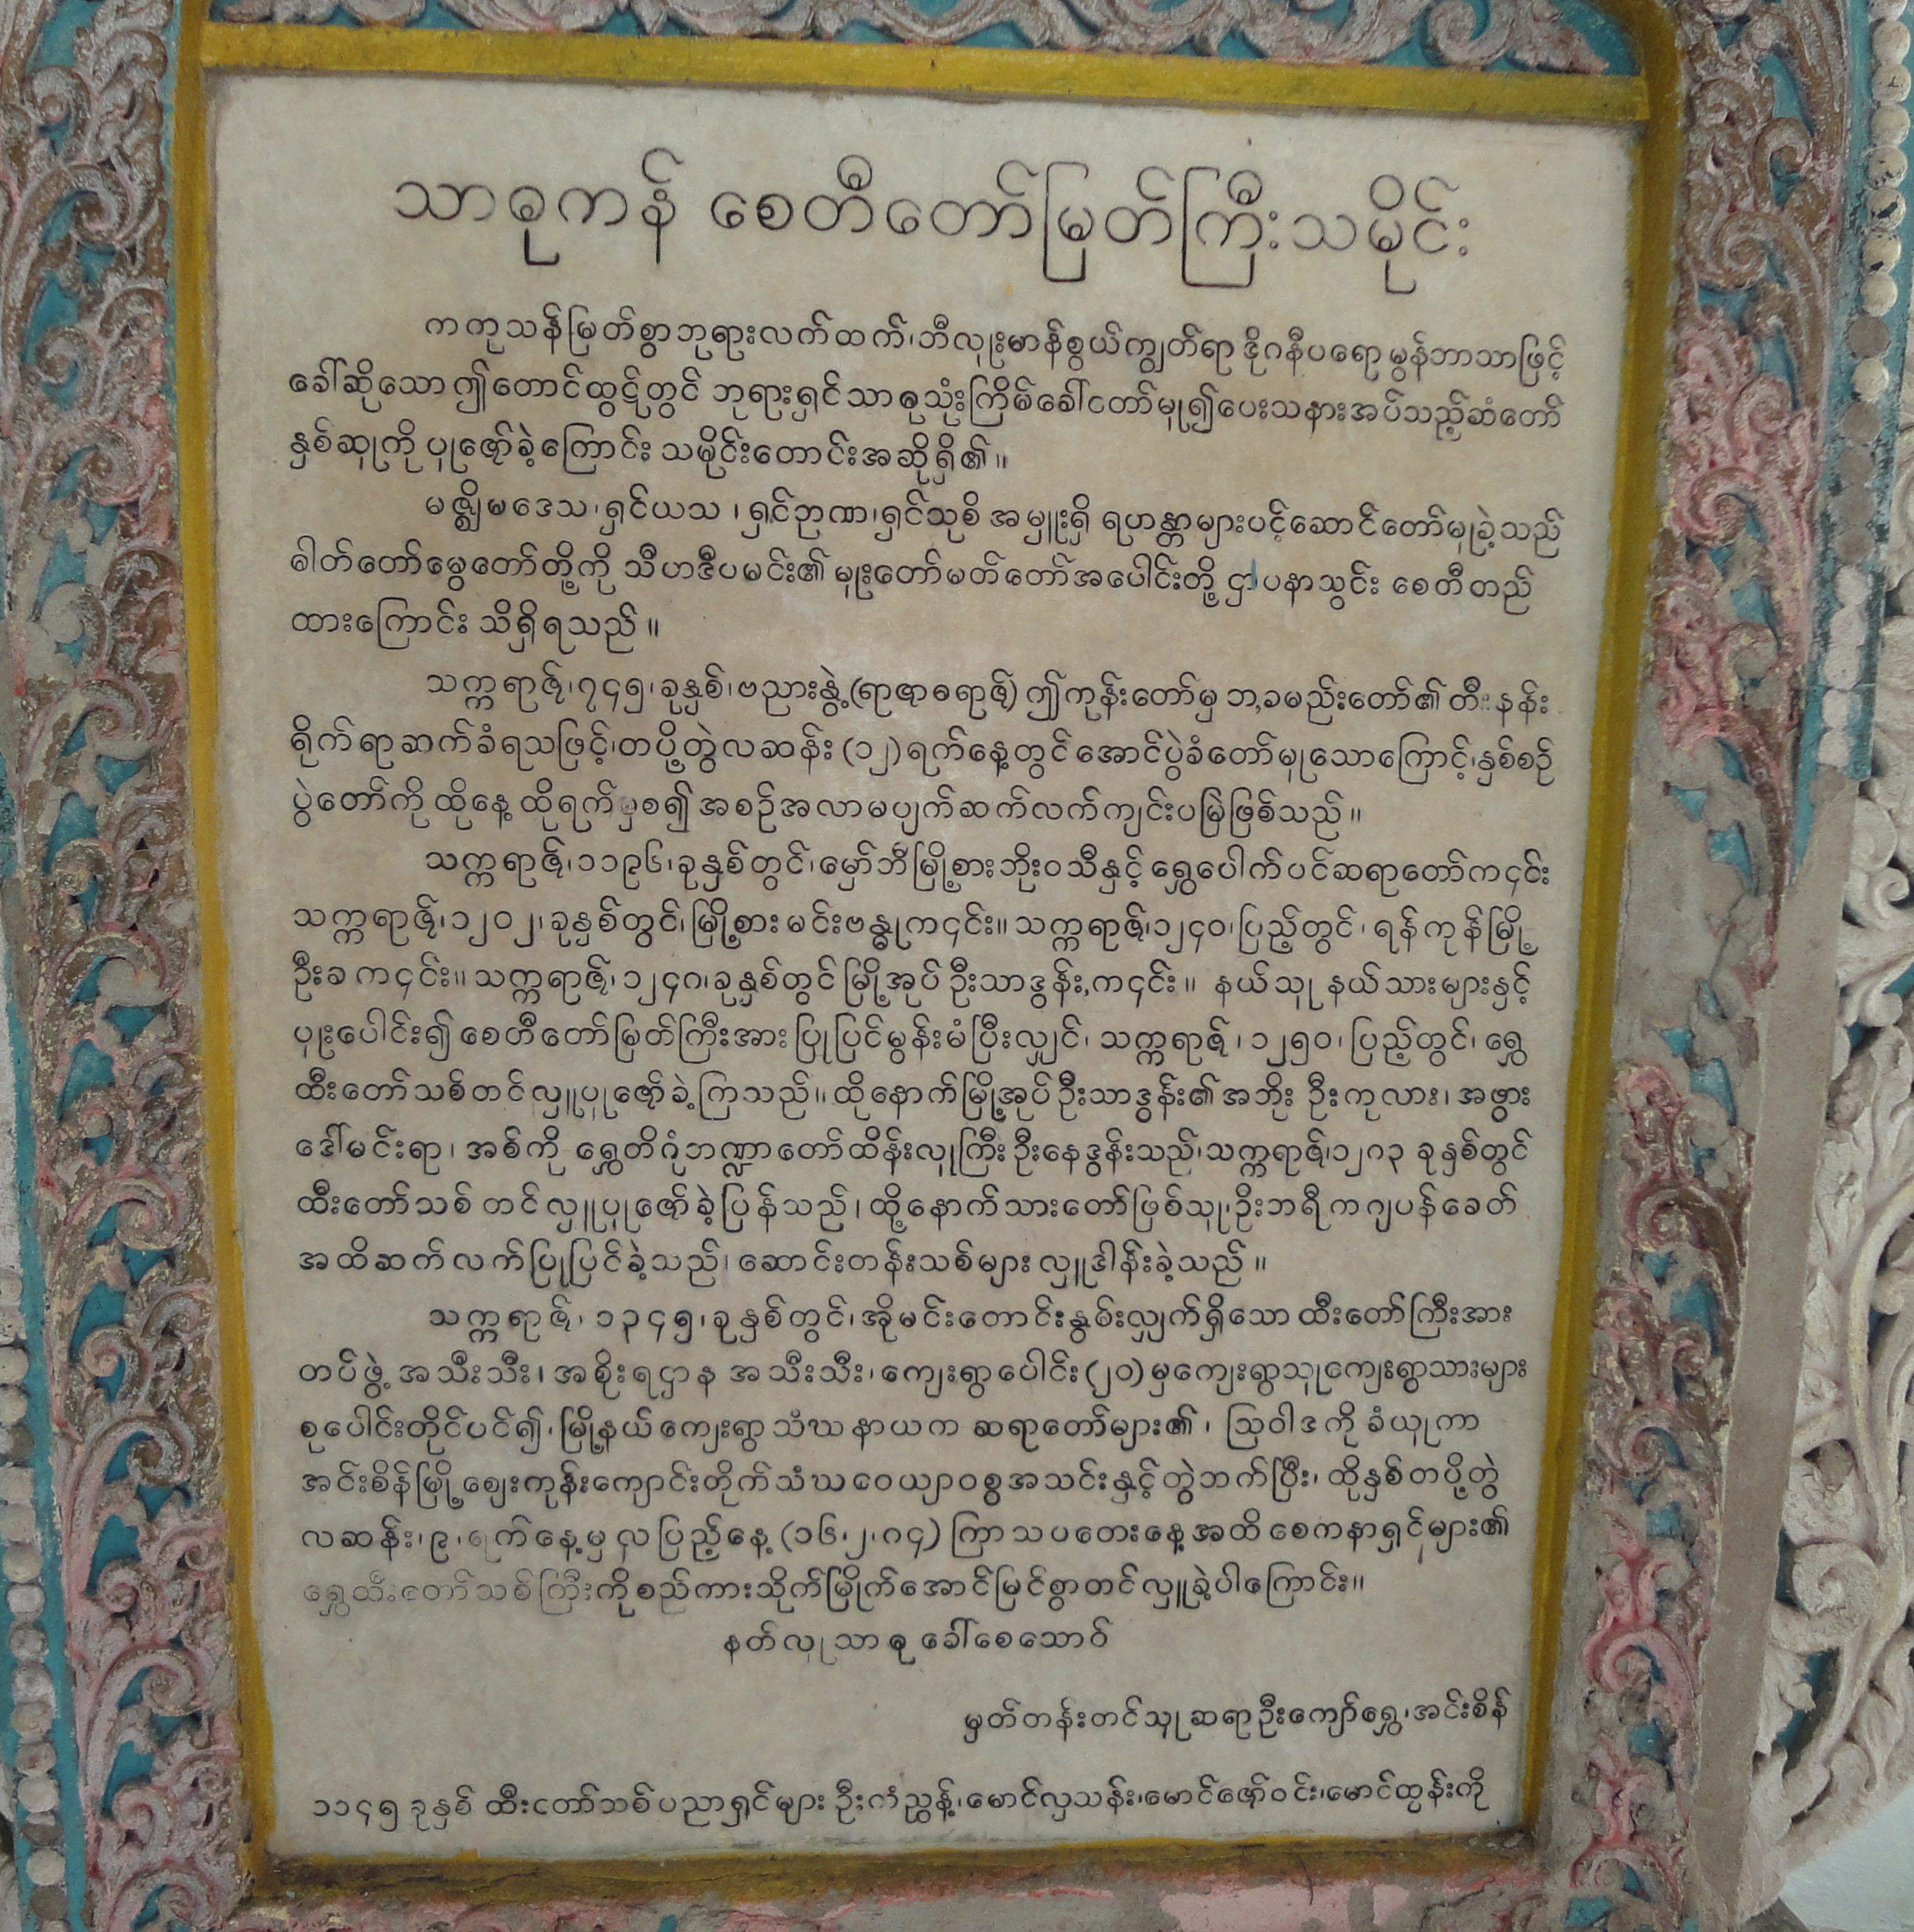 သာဓုကန် စေတီတော်မြတ်ကြီးသမိုင်း
ကကုသန်မြတ်စွာဘုရားလက်ထက်၊ဘီလူးမာန်စွယ်ကျွတ်ရာ ဒိုဂနီပရော မွန်ဘာသာဖြင့်
ခေါ်ဆိုသော ဤတောင်ထွဋ်တွင် ဘုရားရှင်သာဓုသုံးကြိမ်ခေါ်တော်မူ၍ပေးသနားအပ်သည့်ဆံတော်
နှစ်ဆူကို ပူဇော်ခဲ့ကြောင်း သမိုင်းတောင်းအဆိုရှိ၏။
မဇ္ဈိမဒေသ၊ရှင်ယသ ၊ ရှင်ဉာဏ၊ရှင်သုစိ အမှူးရှိ ရဟန္တာများပင့်ဆောင်တော်မူခဲ့သည်
ဓါတ်တော်မွေတော်တို့ကို သီဟဒီပမင်း၏ မှူးတော်မတ်တော်အပေါင်းတို့ ဌာပနာသွင်း စေတီတည်
ထားကြောင်း သိရှိရသည် ။
သက္ကရာဇ်၊၇၄၅၊ခုနှစ်၊ဗညားနွဲ့(ရာဇာဓရာဇ်) ဤကုန်းတော်မှ ဘ,ခမည်းတော်၏ တီးနန်း
ရိုက်ရာဆက်ခံရသဖြင့်၊တပို့တွဲလဆန်း (၁၂) ရက်နေ့တွင် အောင်ပွဲခံတော်မူသောကြောင့်၊နှစ်စဉ်
ပွဲတော်ကို ထိုနေ့ ထိုရက်မှစ၍ အစဉ်အလာမပျက်ဆက်လက်ကျင်းပမြဲဖြစ်သည် ။
သက္ကရာဇ်၊၁၁၉၆၊ခုနှစ်တွင်၊မှော်ဘီမြို့စားဘိုးဝသီနှင့် ရွှေပေါက်ပင်ဆရာတော်က၎င်း
သက္ကရာဇ်၊၁၂၀၂၊ခုနှစ်တွင်၊မြို့စား မင်းဗန္ဓုက၎င်း။ သက္ကရာဇ်၊၁၂၄၀၊ပြည့်တွင် ၊ ရန်ကုန်မြို့
ဦးခ က၎င်း။ သက္ကရာဇ်၊ ၁၂၄၈၊ခုနှစ်တွင် မြို့အုပ် ဦးသာဒွန်း,က၎င်း ။ နယ်သူ နယ်သားများနှင့်
ပူးပေါင်း၍ စေတီတော်မြတ်ကြီးအား ပြုပြင်မွန်းမံပြီးလျှင်၊ သက္ကရာဇ် ၊ ၁၂၅၀၊ ပြည့်တွင်၊ ရွှေ
ထီးတော်သစ်တင်လှူပူဇော်ခဲ့ကြသည်။ ထိုနောက်မြို့အုပ်ဦးသာဒွန်း၏ အဘိုး ဦးကုလား၊ အဖွား
ဒေါ်မင်းရာ၊ အစ်ကို ရွှေတိဂုံဘဏ္ဍာတော်ထိန်းလူကြီး ဦးနေဒွန်းသည်၊သက္ကရာဇ်၊၁၂၈၃ ခုနှစ်တွင်
ထီးတော်သစ် တင်လှူပူဇော်ခဲ့ပြန်သည်၊ ထို့နောက်သားတော်ဖြစ်သူ၊ဦးဘရီကဂျပန်ခေတ်
အထိဆက်လက်ပြုပြင်ခဲ့သည်၊ ဆောင်းတန်းသစ်များ လှူဒါန်းခဲ့သည် ။
သက္ကရာဇ်၊ ၁၃၄၅၊ခုနှစ်တွင်၊အိုမင်းတောင်းနွမ်းလျှက်ရှိသော ထီးတော်ကြီးအား
တပ်ဖွဲ့ အသီးသီး၊ အစိုးရဌာန အသီးသီး၊ကျေးရွာပေါင်း (၂၀) မှကျေးရွာသူကျေးရွာသားများ
စုပေါင်းတိုင်ပင်၍၊မြို့နယ် ကျေးရွာ သံဃနာယက ဆရာတော်များ၏ ၊ ဩဝါဒကို ခံယူကာ
အင်းစိန်မြို့ဈေးကုန်းကျောင်းတိုက်သံဃဝေယျာဝစ္စအသင်းနှင့်တွဲဘက်ပြီး၊ ထိုနှစ်တပို့တွဲ
လဆန်း၊၉၊ရက်နေ့မှ လပြည့်နေ့ (၁၆၊၂၊၈၄) ကြာသပတေးနေ့အထိ စေကနာရှင်များ၏
ရွှေထီးတော်သစ်ကြီးကိုစည်ကားသိုက်မြိုက်အောင်မြင်စွာတင်လှူခဲ့ပါကြောင်း။
နတ်လူသာဓု ခေါ်စေသောဝ်
မှတ်တန်းတင်သူဆရာဦးကျော်ရွှေ၊အင်းစိန်
၁၁၄၅ ခုနှစ် ထီးတော်သစ်ပညာရှင်များ ဦးကံညွန့်၊မောင်လှသန်း၊မောင်ဇော်ဝင်း၊မောင်ထွန်းကို